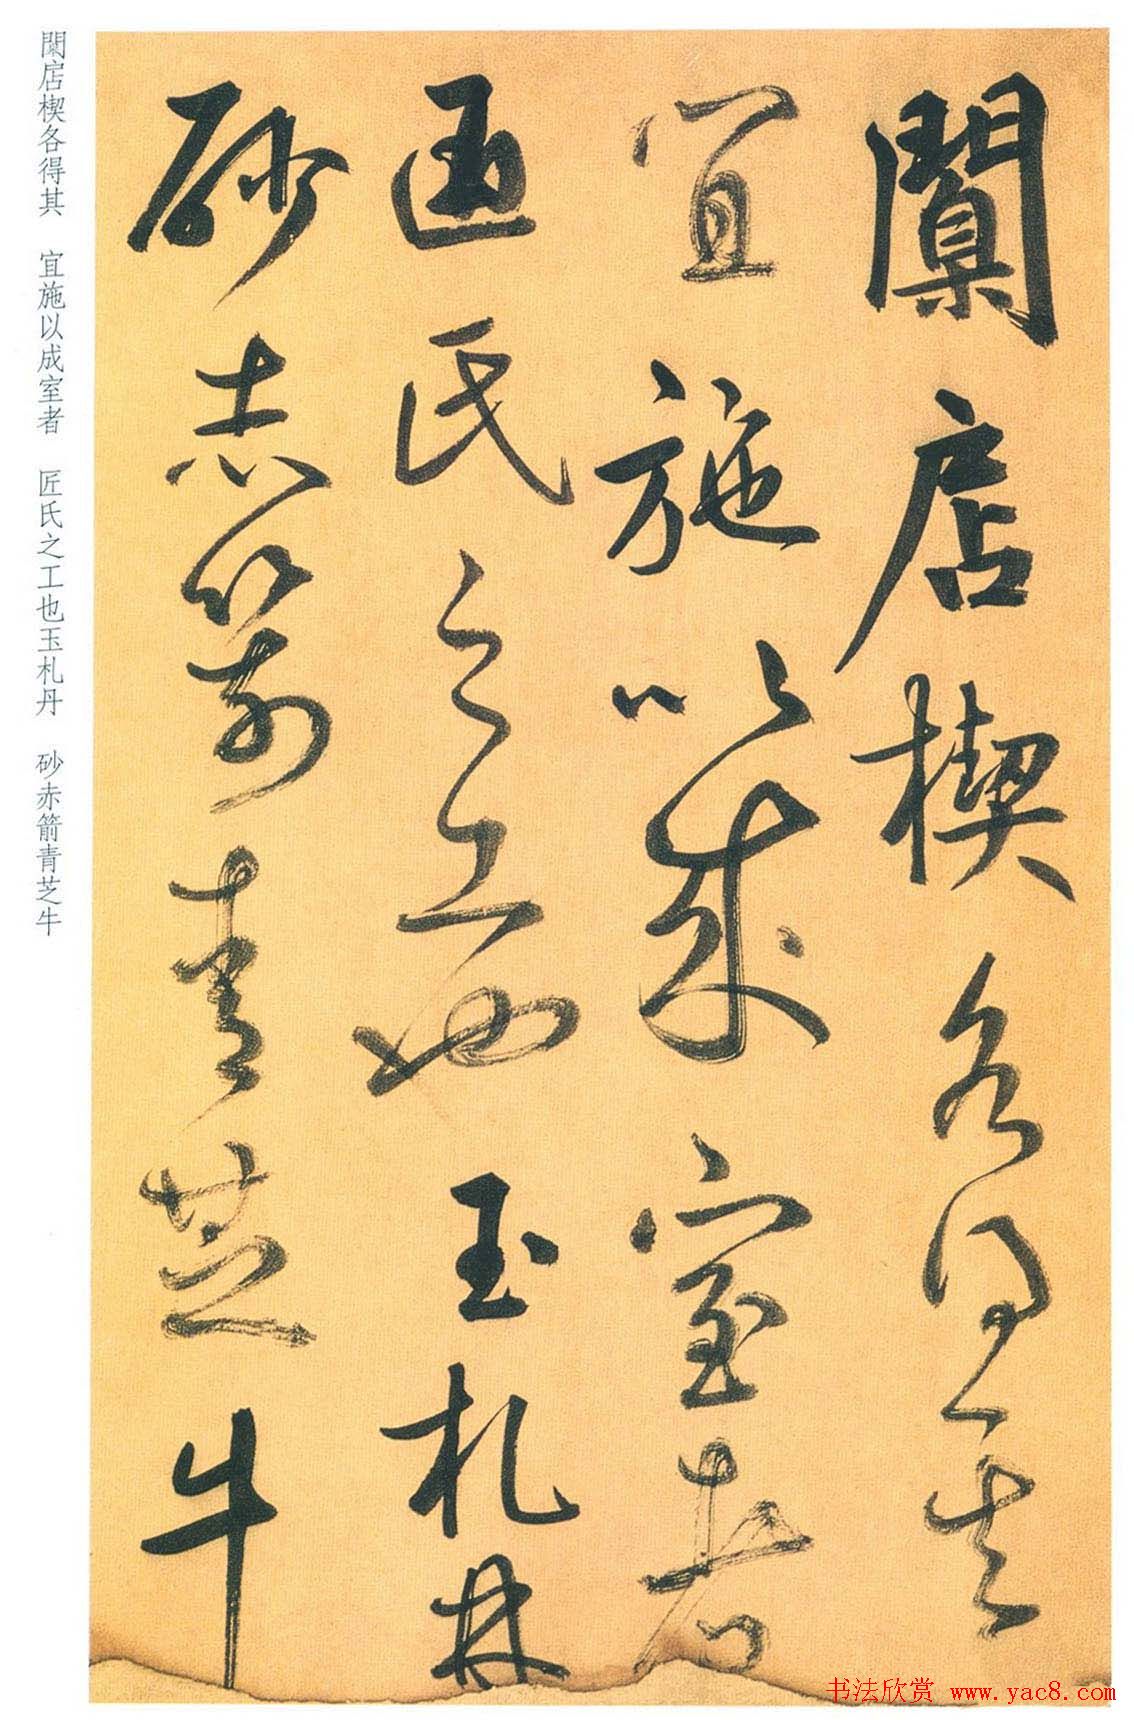 闑店楔各得其
宜施以成室者
匠氏之工也玉札丹
砂赤箭青芝牛
闑店楔各得其 宜施以成室者 匠氏之工也玉札丹 砂赤箭青芝牛
书法欣赏 www.yac8.com